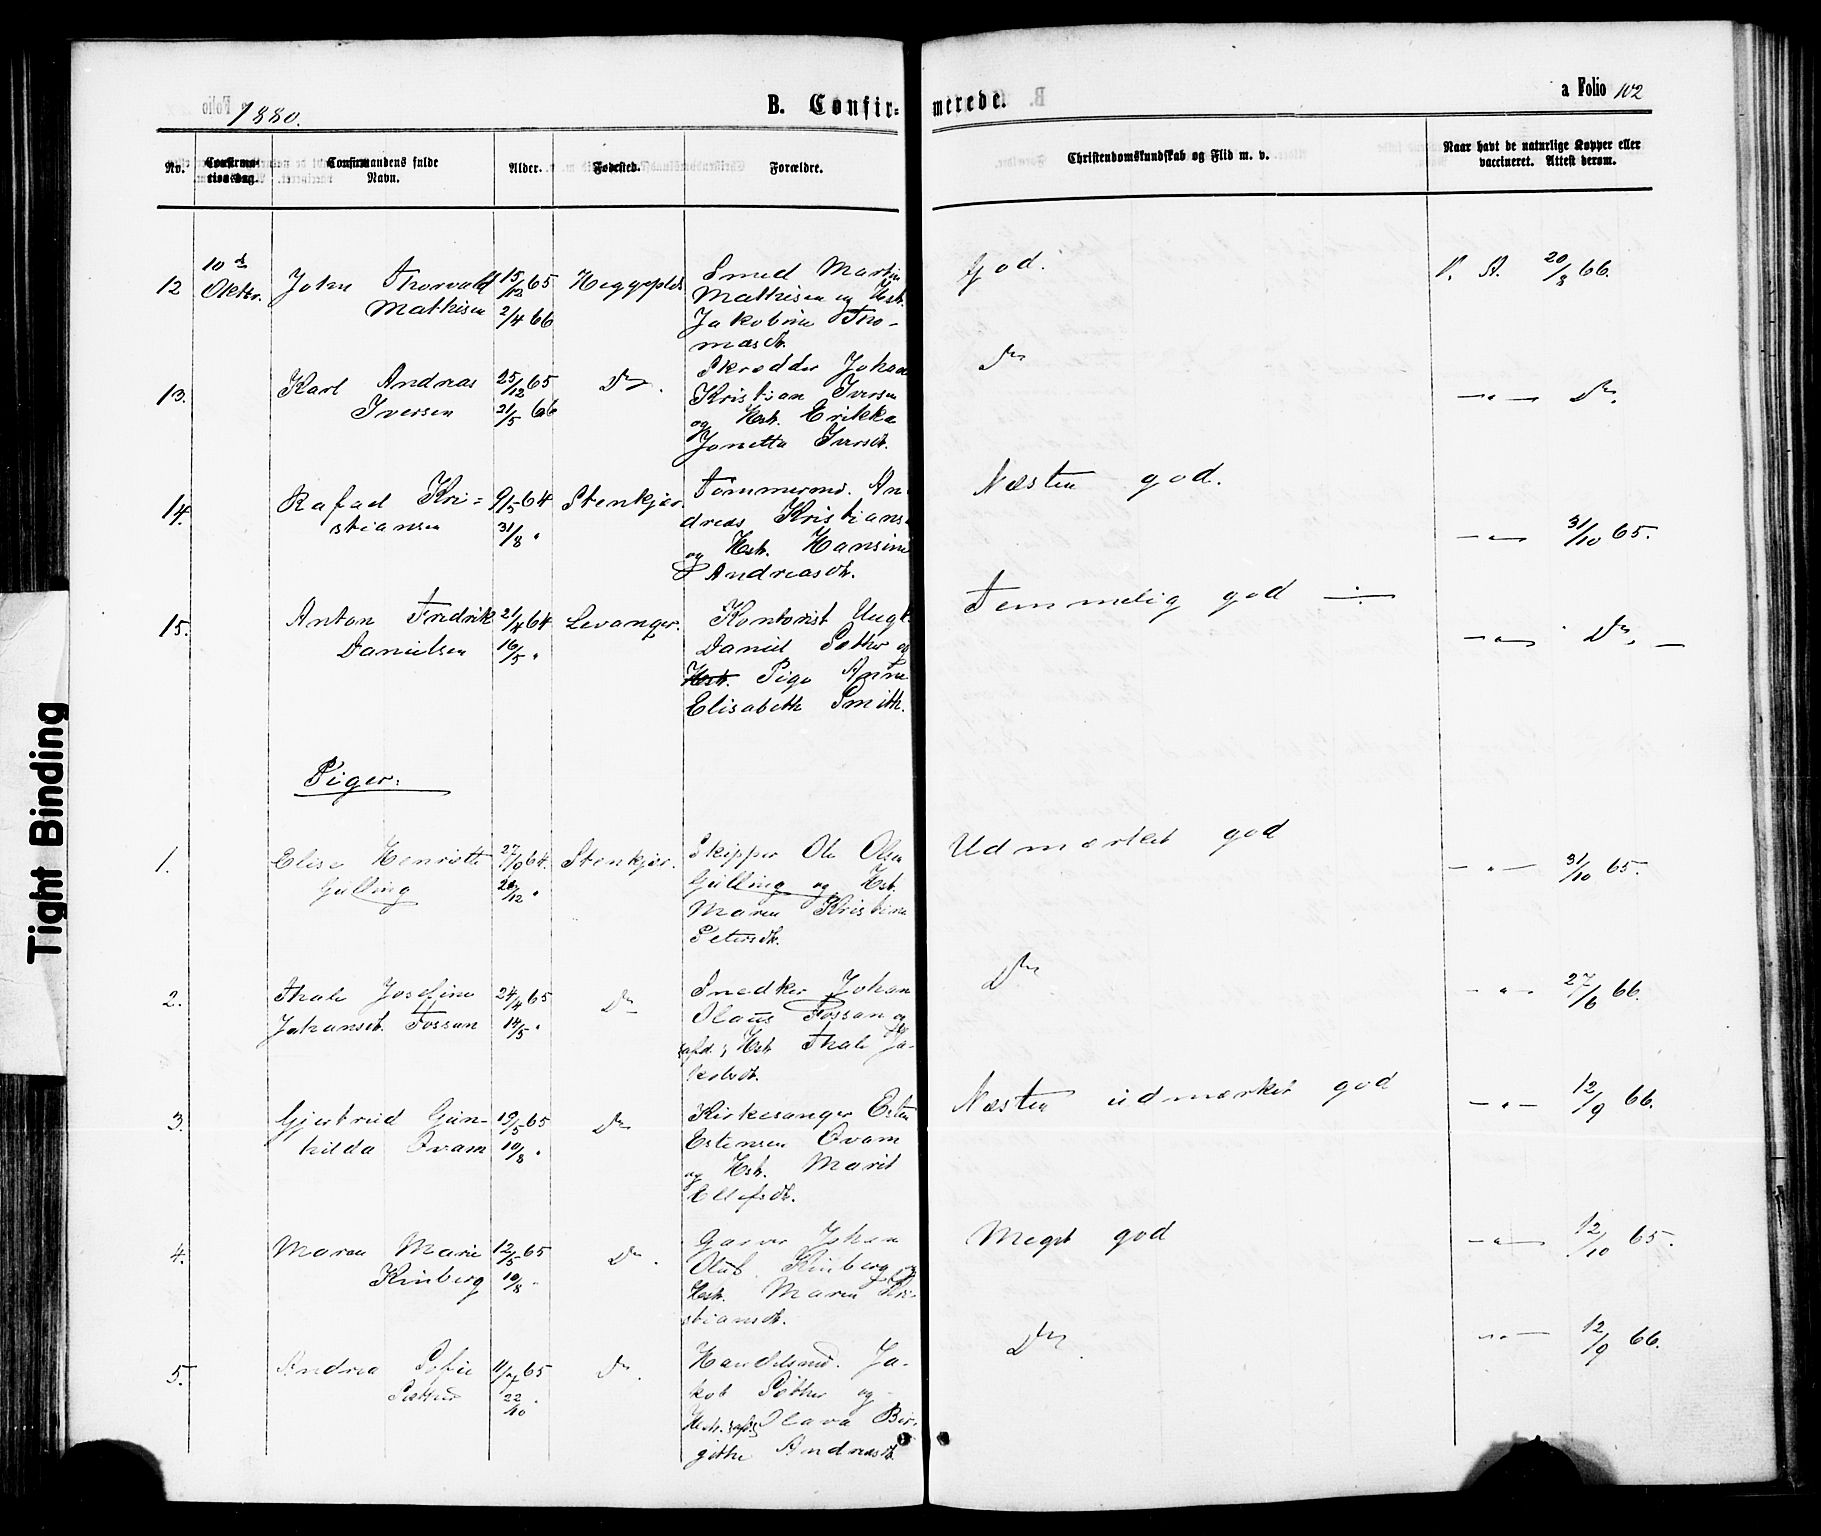 1880.
B. Confir=
merede.
a Folio 102
No.
Confirma-
tionsdag.
Confirmandens fulde
Navn.
Alder.
Fødested.
Forældre.
Christendomskundskab og Flid m. v.
Naar havt de naturlige Kopper eller
vaccineret. Attest derom.
12
10d
Oktbr.
John Thorvald
Mathisen
15/12 65
2/4 66
Heggepld
Smed Martin
Mathisen og Hst.
Jakobine Tho-
masdt.
God.
V. A. 20/8 66.
13.
Karl Andreas
Iversen
25/12 65
21/5 66
Do.
Skrædder Johan
Kristian Iversen
og Hst. Erikka
Jonetta Iversdt.
Do
—"— Do.
14.
Rafael Kri=
stiansen
9/5 64
31/8 "
Stenkjær.
Tømmermd. An-
dreas Kristians
og Hst. Hansine
Andreasdt.
Næsten god.
—"— 31/10 65.
15.
Anton Fredrik
Danielsen
21/4 64
16/5 "
Levanger.
Kontorist Ungk.
Daniel Søther og
Hst. Pige Anne
Elisabeth Smith.
Temmelig god
—"— Do. —
Piger:
1.
Elise Henriette
Gilling
64.
"
Stenkjær.
Skipper Ole Olsen
Gilling og Hst.
Maren Kristine
Petersdt.
Udmærket god
—"— 31/10 65.
2.
Thale Josefine
Johansdt. Fossan
24/4 65
14/5 "
Do
Snedker Johan
Olaus Fossan og
afd. Hst. Thale Ja-
kobsdt.
Do
—"— 27/6 66.
3.
Gjertrud Gun-
hilda Øvam
19/5 65
10/8 "
Do
Kirkesanger Esten
Estensen Øvam
og Hst. Marit
Ellefsdt.
Næsten udmærket god
—"— 12/9 66.
4.
Maren Marie
Kinberg
12/5 65
10/8 "
Do.
Garver Johan
Olub. Kinberg og
Hst. Maren Kri-
stiansdt.
Meget god
—"— 12/10 65.
5.
Andrea Sofie
Sæther
11/7 65
22/10 "
Do.
Handelsmd. Ja-
kob Søther og
Hst. afd. Olava Bir-
githe Andreasdt.
Do.
—"— 12/9 66.
Tight Binding